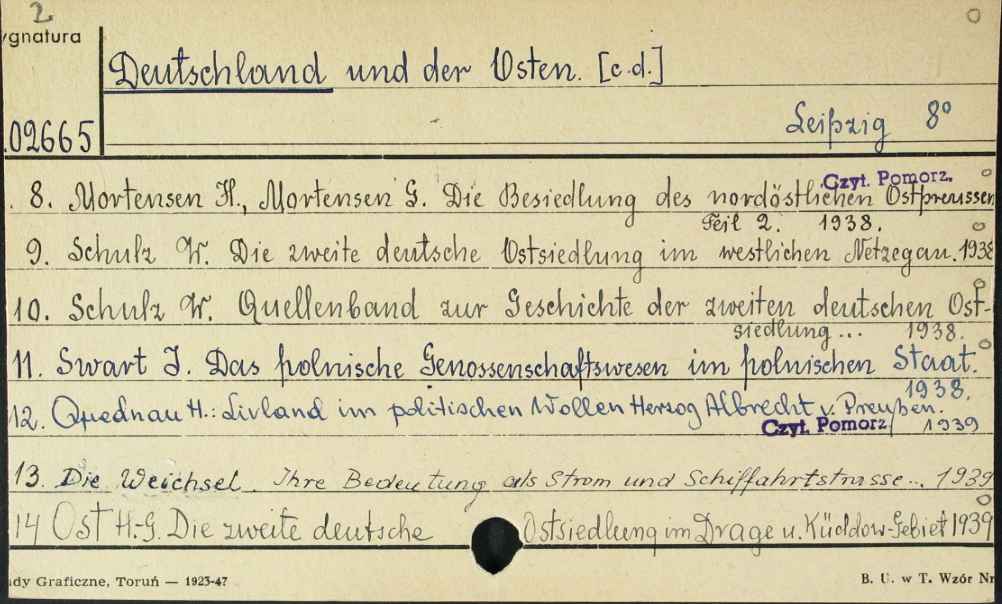 2
ygnatura
Deutschland und der Osten. [c.d.]
.02665
Leipzig 8°
Czyt. Pomorz.
8. Mortensen H., Mortensen G. Die Besiedlung des nordöstlichen Ostpreussen
Teil 2. 1938.
9. Schulz W. Die zweite deutsche Ostsiedlung im westlichen Netzegau. 1938
10. Schulz W. Quellenband zur Geschichte der zweiten deutschen Ost-
siedlung... 1938.
11. Swart J. Das polnische Genossenschaftswesen im polnischen Staat.
1938.
12. Quednau H.: Livland im politischen Wollen Herzog Albrecht v. Preußen.
Czyt. Pomorz. 1939
13. Die Weichsel. Ihre Bedeutung als Strom und Schiffahrtstrasse... 1939
14 Ost H.-G. Die zweite deutsche Ostsiedlung im Drage u. Küddow-Gebiet 1939
dy Graficzne, Toruń — 1923-47
B. U. w T. Wzór Nr